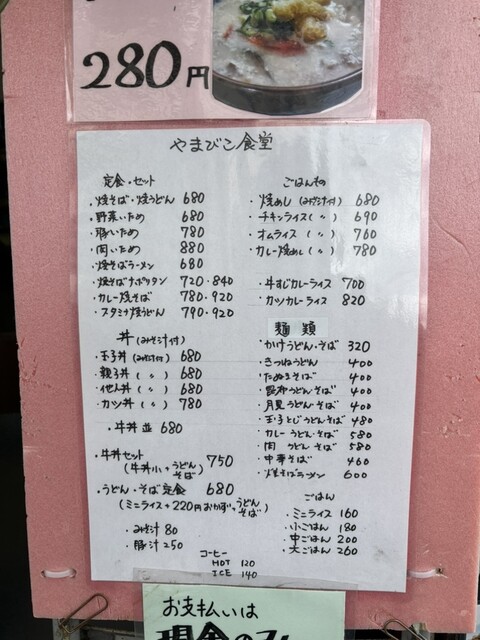 280円
やまびこ食堂
定食・セット
・焼そば・焼うどん 680
・野菜いため 680
・豚いため 780
・肉いため 880
・焼そばラーメン 680
・焼そばナポリタン 720・840
・カレー焼そば 780・920
・スタミナ焼うどん 790・920
丼(みそ汁付)
・玉子丼(みそ汁付) 680
・親子丼(〃) 680
・他人丼(〃) 680
・カツ丼(〃) 780
・牛丼 並 680
・牛丼セット 750
(牛丼小+うどん
そば)
・うどん・そば定食 680
(ミニライス+220円おかず+うどん
そば)
・みそ汁 80
・豚汁 250
コーヒー
HOT 120
ICE 140
ごはんもの
・焼めし(みそ汁付) 680
・チキンライス(〃) 690
・オムライス(〃) 760
・カレー焼めし(〃) 780
・牛すじカレーライス 700
・カツカレーライス 820
麺類
・かけうどん・そば 320
・きつねうどん 400
・たぬきそば 400
・昆布うどん・そば 400
・月見うどん・そば 400
・玉子とじうどん・そば 480
・カレーうどん・そば 580
・肉うどん・そば 580
・中華そば 460
・焼そばラーメン 600
ごはん
・ミニライス 160
・小ごはん 180
・中ごはん 200
・大ごはん 260
お支払いは
現金のみ